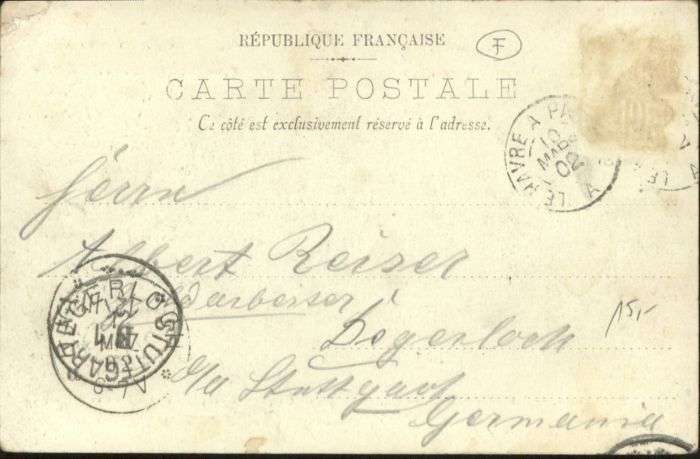 RÉPUBLIQUE FRANÇAISE
F
CARTE POSTALE
Ce côté est exclusivement réservé à l'adresse.
LE HAVRE A PA
10
MARS
02
Herrn
Albert Reiser
Degerloch
Stuttgart
Germania
STUTTGART
15,-